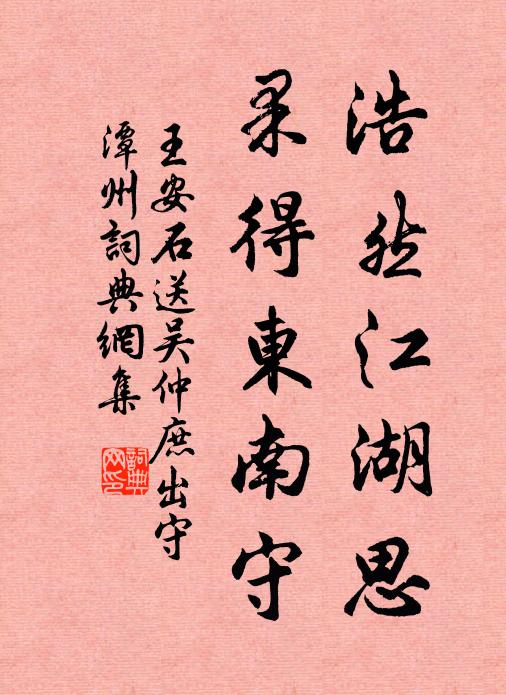 浩然江湖思
果得東南守
王安石送吴仲庶出守
潭州詞典網集
詞典網印